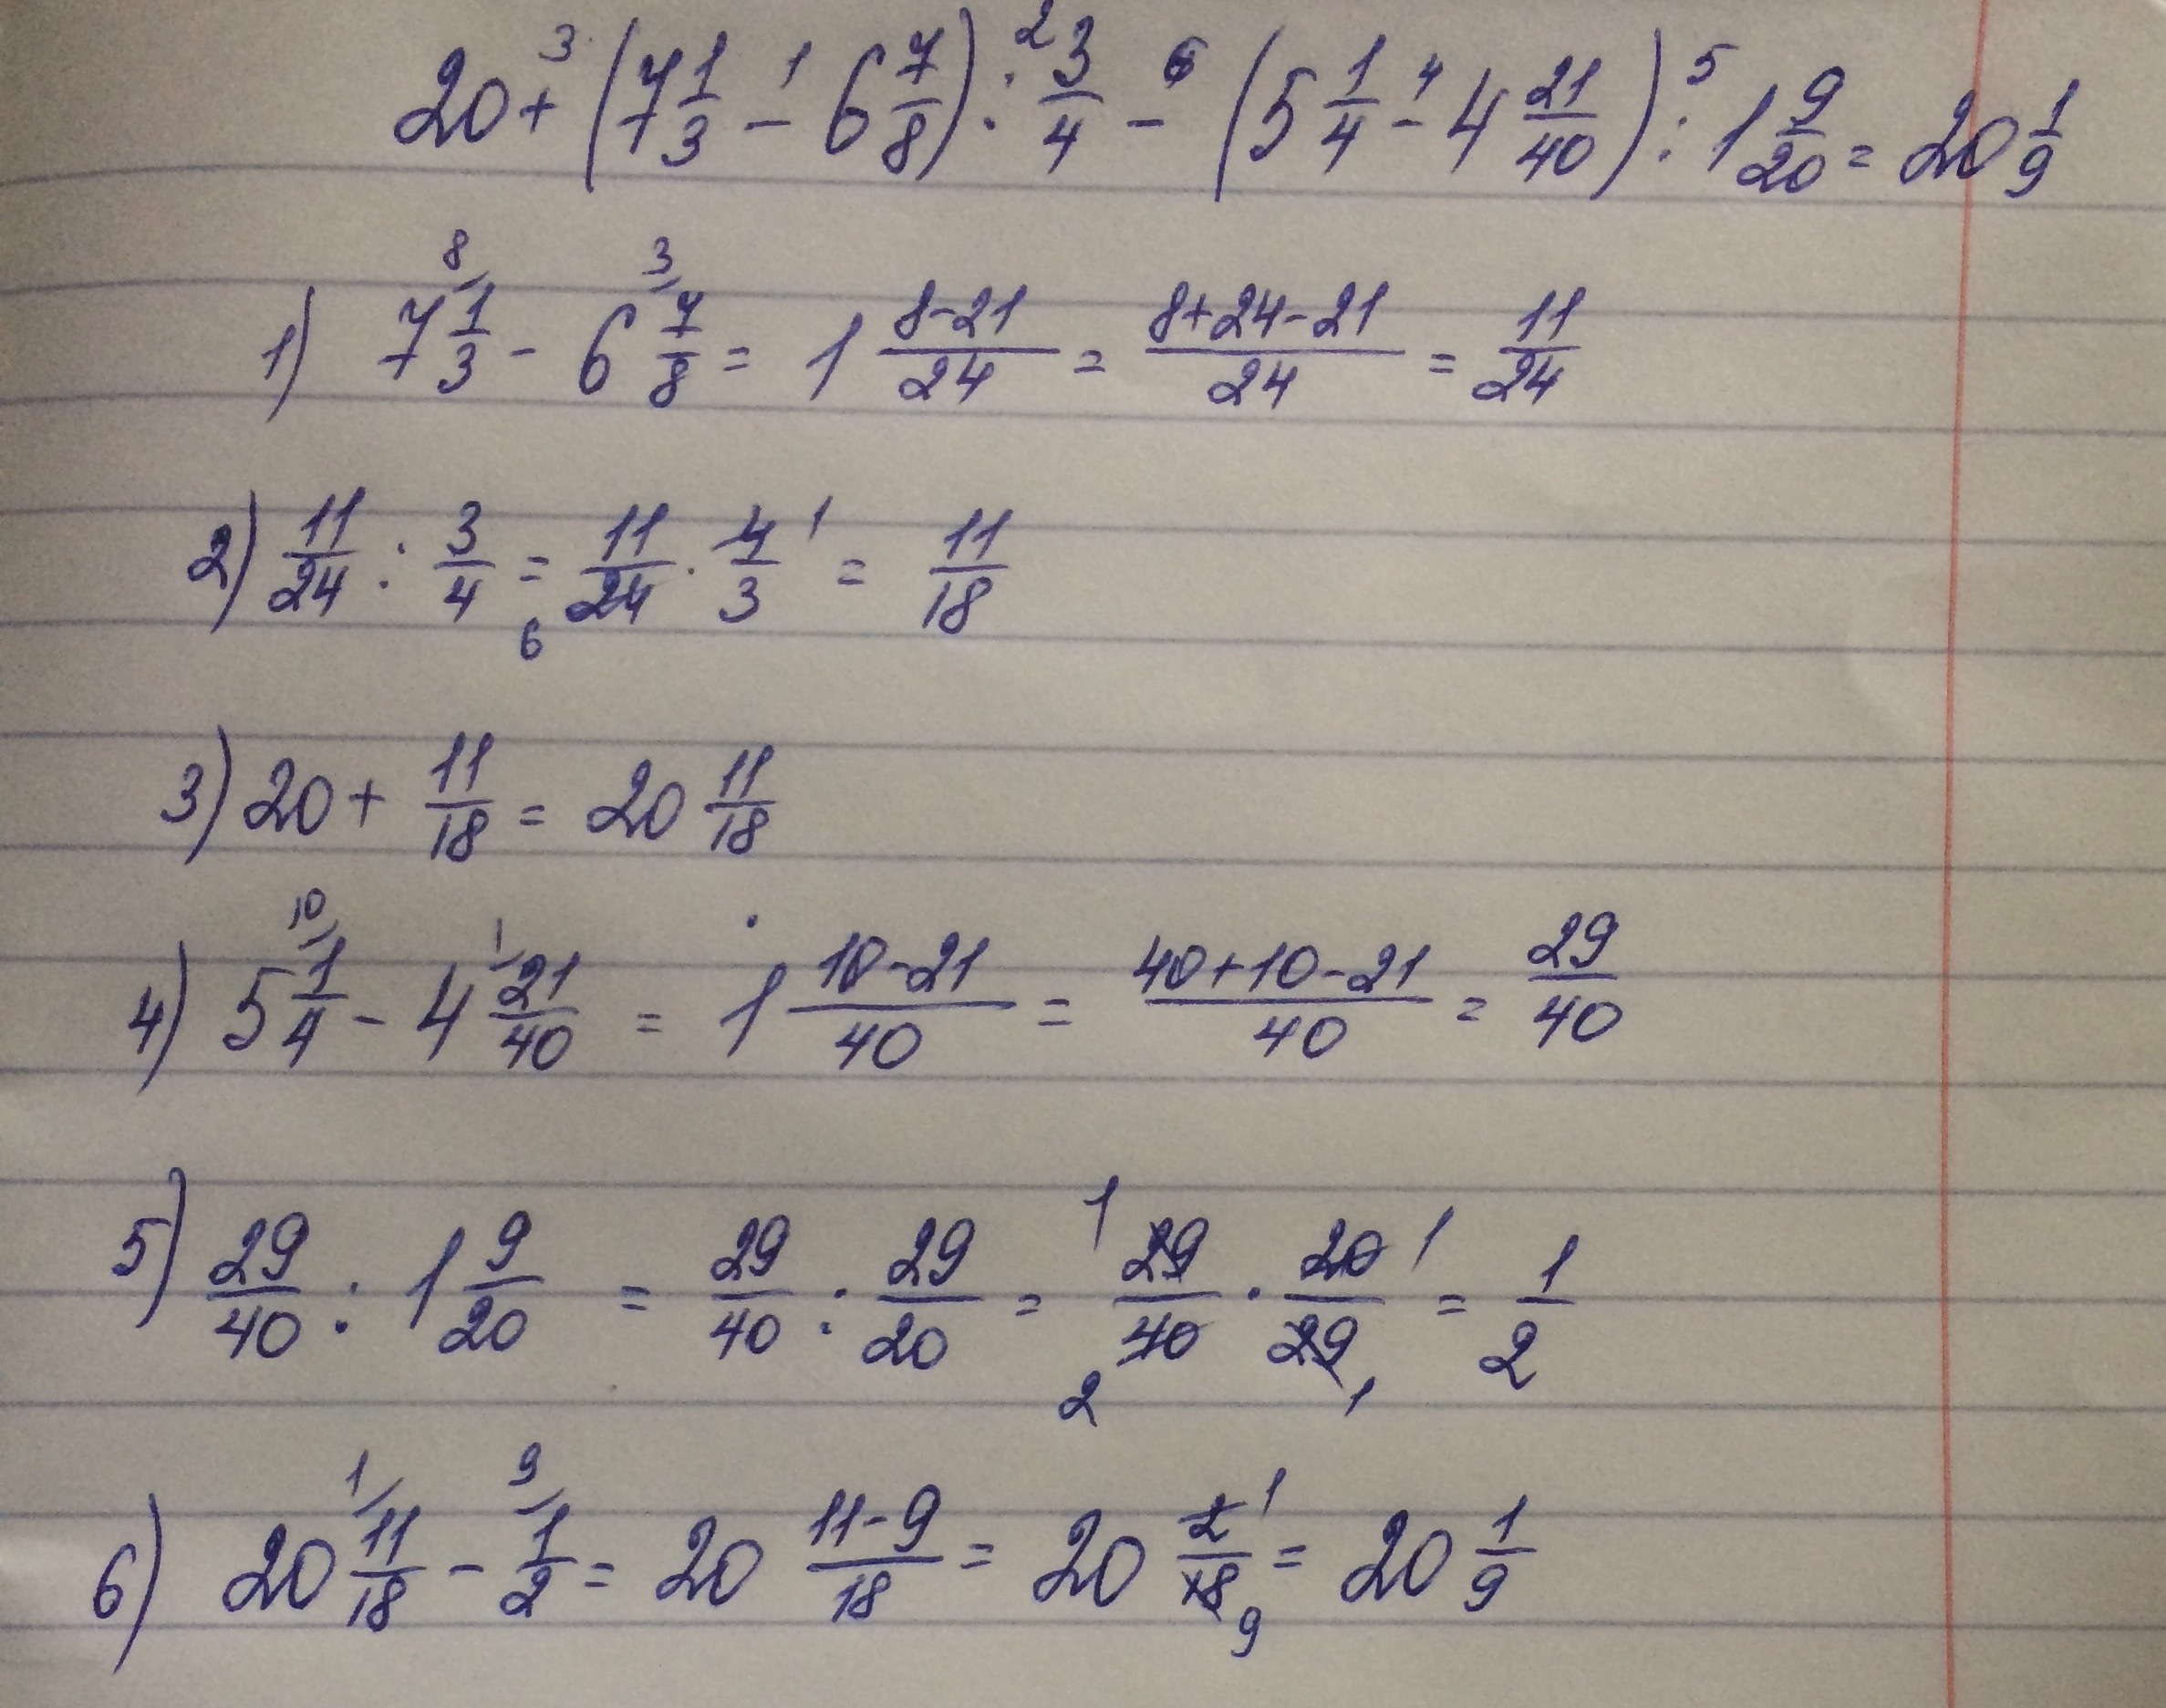 20 +³ (7 1/3 -¹ 6 7/8) :² 3/4 -⁶ (5 1/4 -⁴ 4 21/40) :⁵ 1 9/20 = 20 1/9
1) 7 ⁸⁄ 1/3 - 6 ³⁄ 7/8 = 1 (8-21)/24 = (8+24-21)/24 = 11/24
2) 11/24 : 3/4 = 11/24 · 4/3 = 11/18
6 1
3) 20 + 11/18 = 20 11/18
4) 5 ¹⁰⁄ 1/4 - 4 ¹⁄ 21/40 = 1 (10-21)/40 = (40+10-21)/40 = 29/40
5) 29/40 : 1 9/20 = 29/40 : 29/20 = 29/40 · 20/29 = 1/2
1 1 2 1
6) 20 ¹⁄ 11/18 - ⁹⁄ 1/2 = 20 (11-9)/18 = 20 2/18 = 20 1/9
1 9